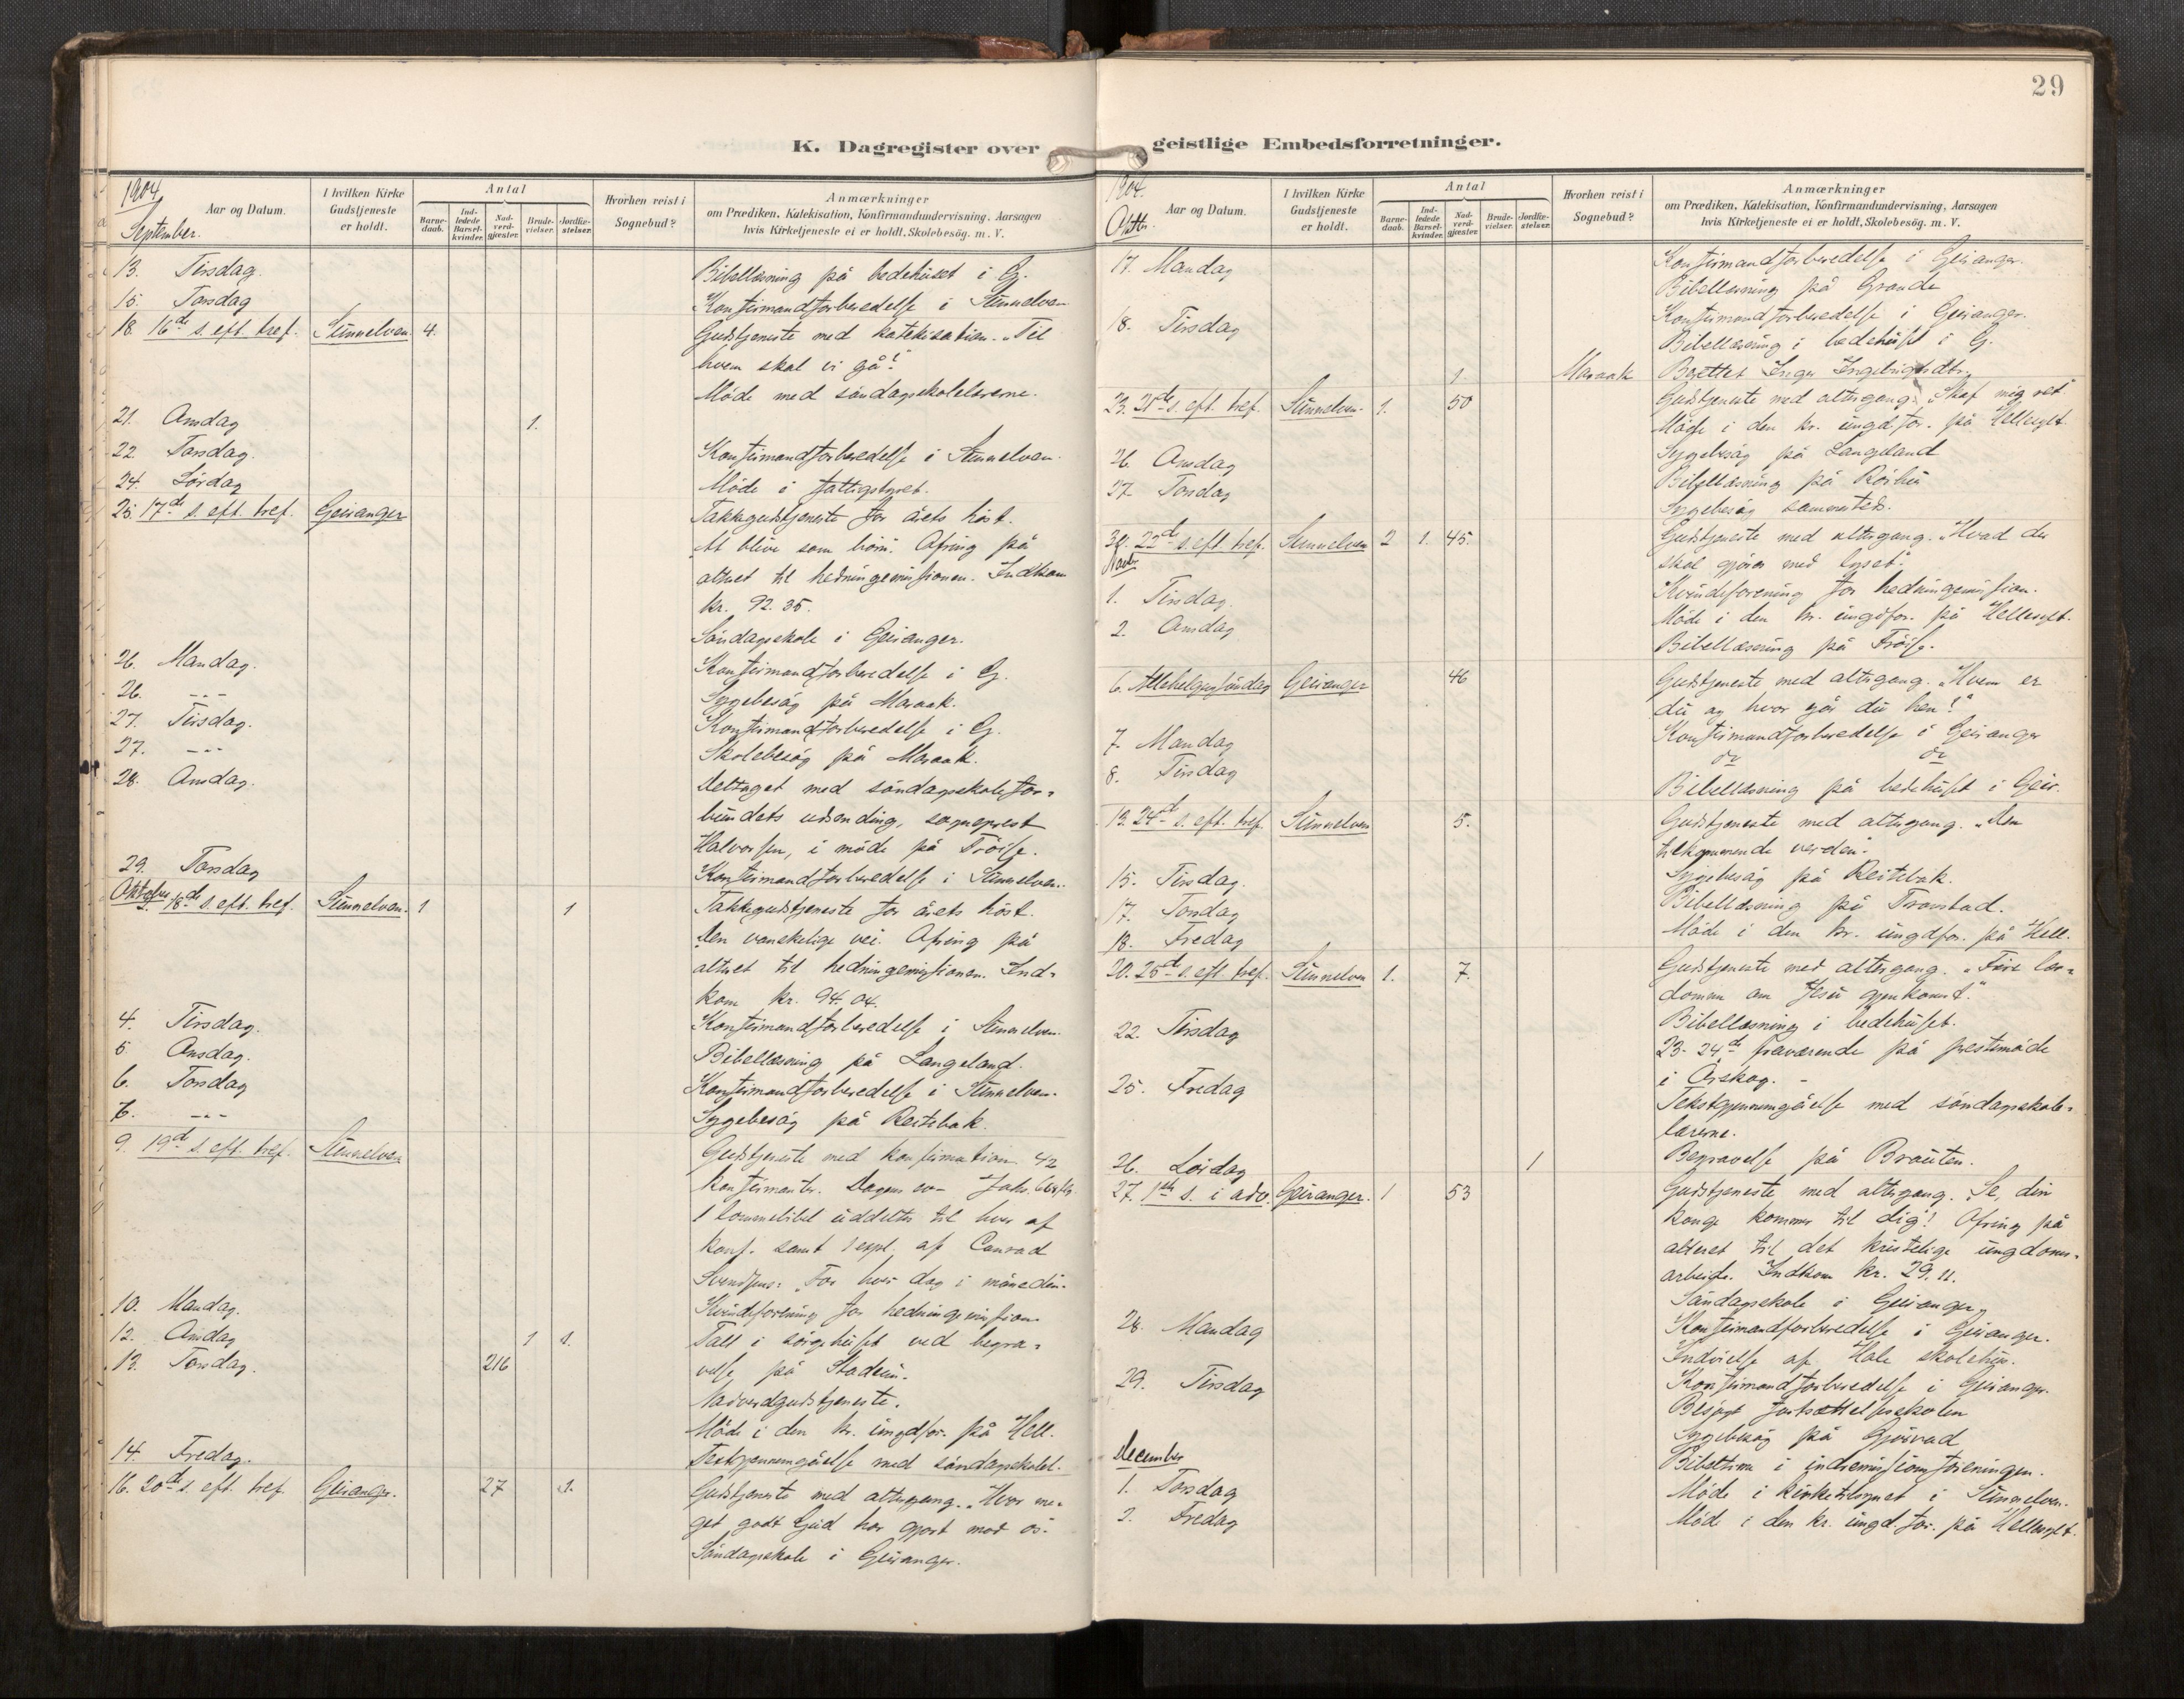 29
K. Dagregister over geistlige Embedsforretninger.
1904
September.
Aar og Datum.
I hvilken Kirke Gudstjeneste er holdt.
Antal
Barne-daab.
Ind-ledede Barsel-kvinder.
Nad-verd-gjæster.
Brude-vielser.
Jordfæ-stelser.
Hvorhen reist i Sognebud?
Anmærkninger
om Prædiken, Katekisation, Konfirmandundervisning, Aarsagen
hvis Kirketjeneste ei er holdt, Skolebesøg. m. V.
13. Tirsdag. Bibellæsning på bedehuset i G.
15. Torsdag Konfirmandforberedelse i Sunnelven
18. 16de s. eft. tref. Sunnelven. 4. Gudstjeneste med katekisation. "Til
hvem skal vi gå?"
Møde med søndagsskolelærerne.
21. Onsdag 1.
22. Torsdag. Konfirmandforberedelse i Sunnelven.
24. Lørdag Møde i fattigstyret.
25. 17de s. eft. tref. Geiranger Takkegudstjeneste for årets høst.
At blive som børn. Ofring på
alteret til hedningemissionen. Indkom
kr. 92.35.
Søndagsskole i Geiranger.
26. Mandag. Konfirmandforberedelse i G.
26. --- Sygebesøg på Maraak.
27. Tirsdag. Konfirmandforberedelse i G.
27. --- Skolebesøg på Maraak.
28. Onsdag. Deltaget med søndagsskolefor-
bundets udsending, sogneprest
Halvorsen, i møde på Frøise.
29. Torsdag Konfirmandforberedelse i Sunnelven.
Oktober
2. 18de s. eft. tref. Sunnelven. 1 1 Takkegudstjeneste for årets høst.
Den vanskelige vei. Ofring på
alteret til hedningemissionen. Ind-
kom kr. 94.04.
4. Tirsdag. Konfirmandforberedelse i Sunnelven.
5. Onsdag. Bibellæsning på Langeland.
6. Torsdag Konfirmandforberedelse i Sunnelven.
6. --- Sygebesøg på Reitebak.
9. 19de s. eft. tref. Sunnelven Gudstjeneste med konfirmation. 42
konfirmanter. Dagens ev- Joh.
1 lommebibel uddeltes til hver af
konf. samt 1 expl. af Conrad
Svendsens: "For hver dag i måneden.
10. Mandag. Kvindeforening for hedningemission
12. Onsdag 1 1. Tale i sørgehuset ved begra-
13. Torsdag. 216 velse på Stadeim.
Nadverdgudstjeneste.
Møde i den kr. ungdfor. på Hell.
14. Fredag. Textgjennemgåelse med søndagsskolel.
16. 20de s. eft. tref. Geiranger. 27 1. Gudstjeneste med altergang. "Hvor me-
get godt Gud har gjort mod os.
Søndagsskole i Geiranger.
1904.
Oktbr.
Aar og Datum.
I hvilken Kirke Gudstjeneste er holdt.
Antal
Barne-daab.
Ind-ledede Barsel-kvinder.
Nad-verd-gjæster.
Brude-vielser.
Jordfæ-stelser.
Hvorhen reist i Sognebud?
Anmærkninger
om Prædiken, Katekisation, Konfirmandundervisning, Aarsagen
hvis Kirketjeneste ei er holdt, Skolebesøg. m. V.
17. Mandag Konfirmandforberedelse i Geiranger.
Bibellæsning på Grande
18. Tirsdag Konfirmandforberedelse i Geiranger.
Bibellæsning i bedehuset i G.
1 Maraak Berettet Inger Ingebrigtsdtr.
23. 21de s. eft. tref. Sunnelven. 1. 50 Gudstjeneste med altergang. "Skaf mig ret"
Møde i den kr. ungdfor. på Hellesylt.
26. Onsdag Sygebesøg på Langeland
27. Torsdag Bibellæsning på Røshu
Sygebesøg sammesteds.
30. 22de s. eft. tref. Sunnelven 2 1. 45. Gudstjeneste med altergang. "Hvad du
Novbr. skal gjøre med lyset."
1. Tirsdag. Kvindeforening for hedningemission.
2. Onsdag Møde i den kr. ungdfor. på Hellesylt.
Bibellæsning på Frøise.
6. Allehelgensøndag Geiranger 46 Gudstjeneste med altergang. "Hvem er
du og hvor går du hen?"
7. Mandag Konfirmandforberedelse i Geiranger
8. Tirsdag do do
Bibellæsning på bedehuset i Geir.
13. 24de s. eft. tref. Sunnelven 5. Gudstjeneste med altergang. "Den
tilkommende verden.
15. Tirsdag. Sygebesøg på Reitebak.
17. Torsdag Bibellæsning på Tronstad.
18. Fredag Møde i den kr. ungdfor. på Hell.
20. 25de s. eft. tref. Sunnelven 1. 7. Gudstjeneste med altergang. "Fire lær-
domme om Jesu gjenkomst."
22. Tirsdag Bibellæsning i bedehuset.
23-24de fraværende på prestemøde
i Ørskog. -
25. Fredag Tekstgjennemgåelse med søndagsskole-
lærerne.
26. Lørdag 1 Begravelse på Brauten.
27. 1ste s. i adv. Geiranger. 1 53 Gudstjeneste med altergang. "Se, din
konge kommer til dig! Ofring på
alteret til det kristelige ungdoms-
arbeide. Indkom kr. 29.11.
Søndagsskole i Geiranger,
28. Mandag Konfirmandforberedelse i Geiranger.
Indvielse af Hole skolehus.
29. Tirsdag Konfirmandforberedelse i Geiranger.
Besøgt fortsættelsesskolen
Sygebesøg på Gjørvad
December Bibeltime i indremissionsforeningen.
1. Torsdag Møde i kirketilsynet i Sunnelven.
2. Fredag Møde i den kr. ungdfor. på Hellesylt.